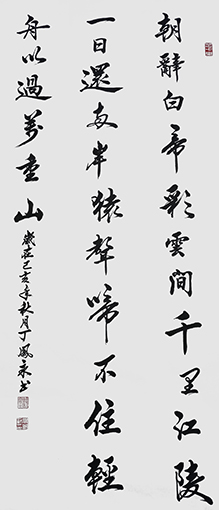 朝辭白帝彩雲間千里江陵
一日還兩岸猿聲啼不住輕
舟以過萬重山
歲在己亥年秋月丁鳳書